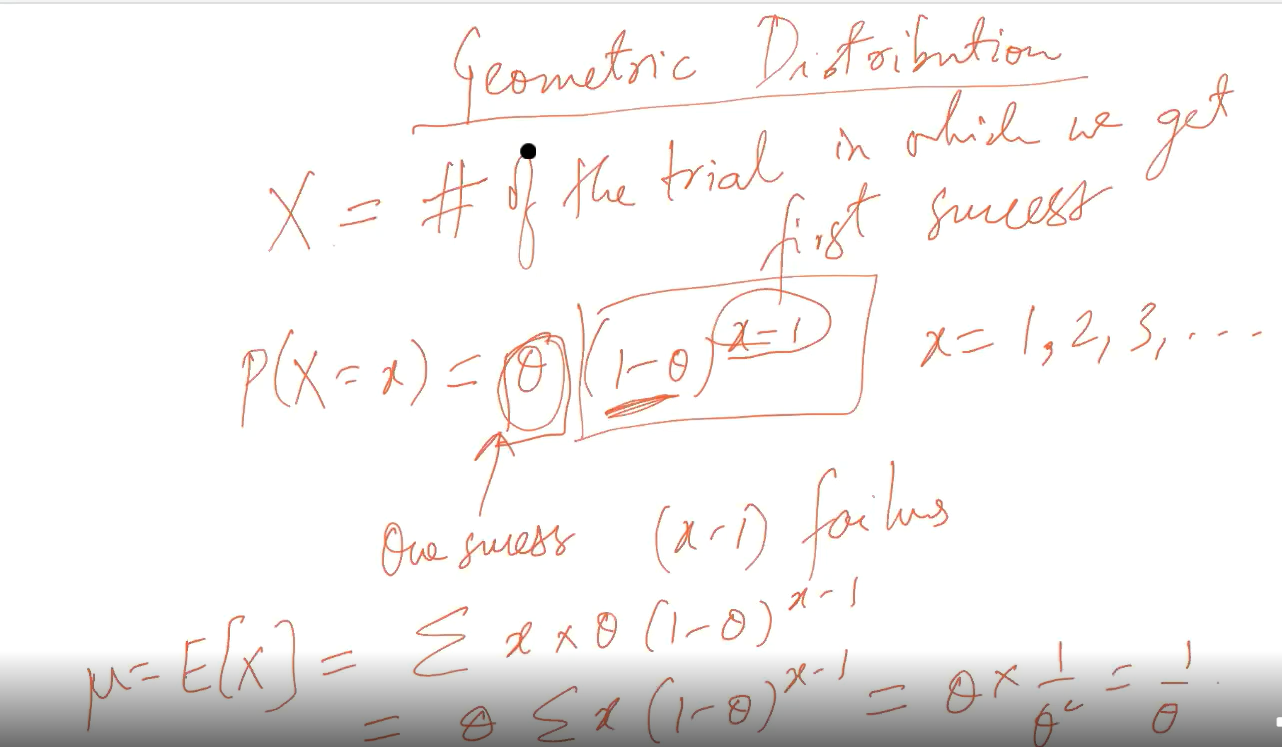 Geometric Distribution
X = # of the trial in which we get
first success
P(X = x) = θ (1-θ)^{x-1} x = 1, 2, 3, ...
One success (x-1) failures
μ = E[X] = Σ x × θ (1-θ)^{x-1}
= θ Σ x (1-θ)^{x-1} = θ × 1/θ² = 1/θ